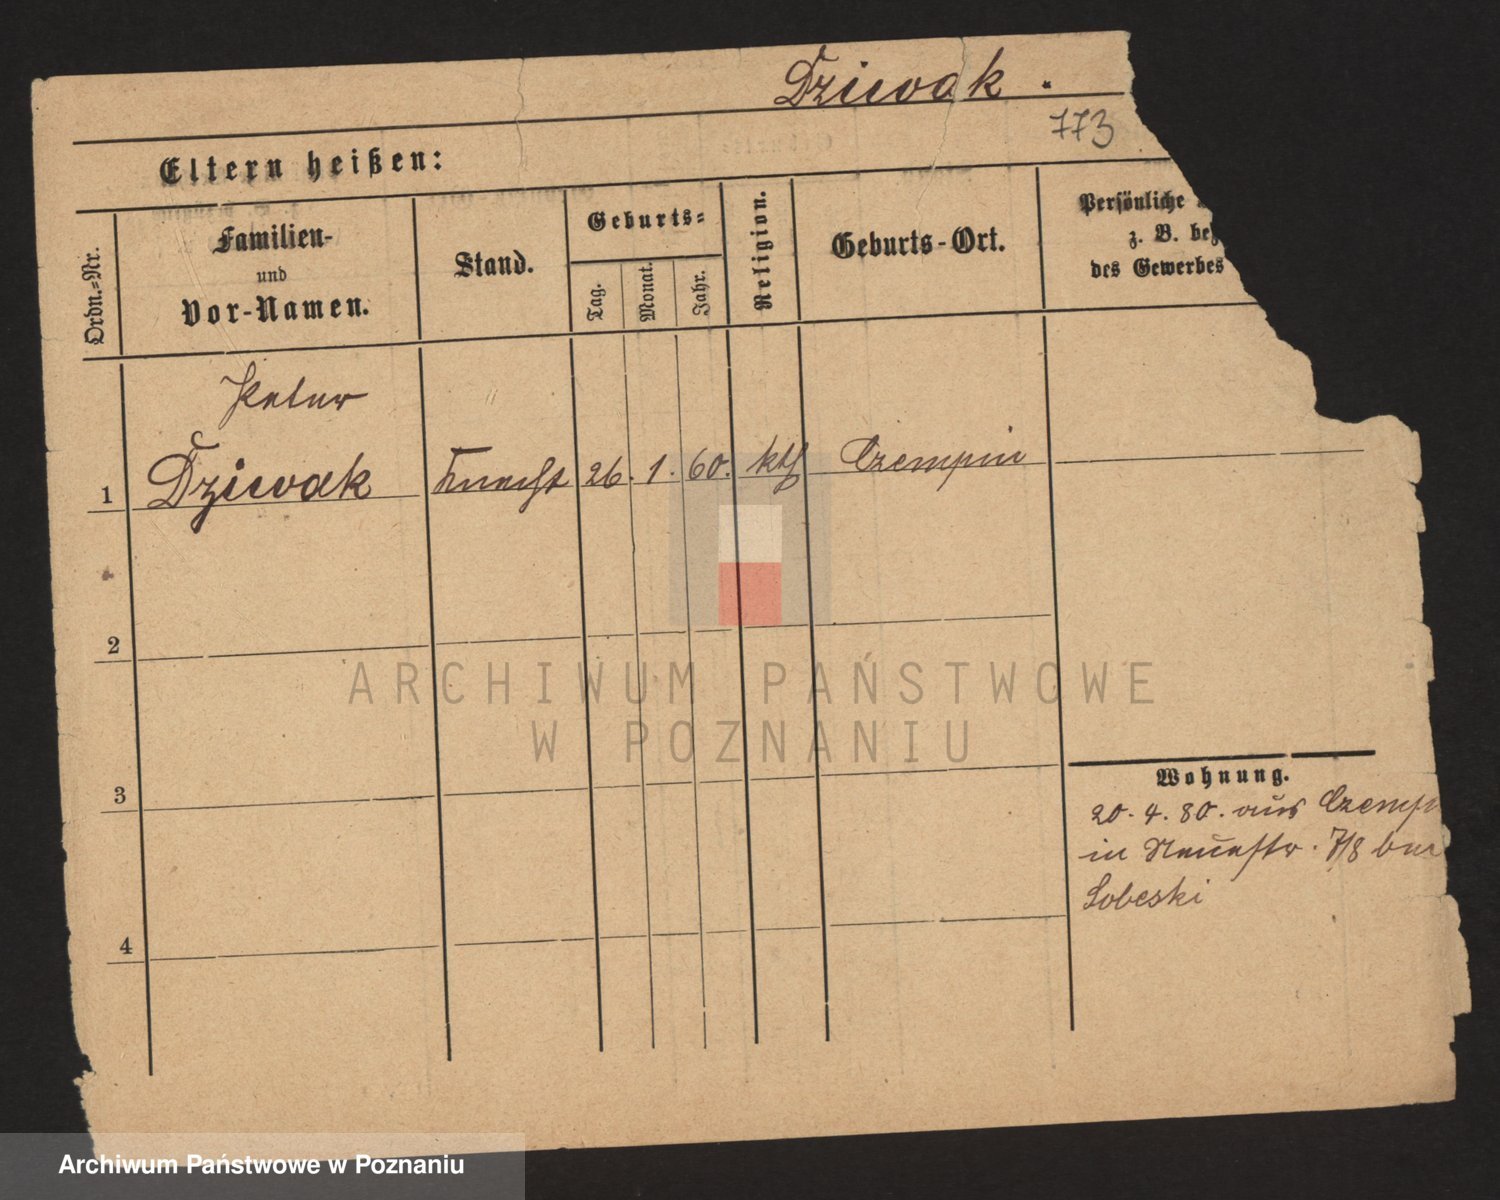 Dziwak.
773
Eltern heißen:
Ordn.=Nr.
Familien-
und
Vor-Namen.
Stand.
Geburts=
Tag.
Monat.
Jahr.
Religion.
Geburts-Ort.
Persönliche
z. B. bez
des Gewerbes
Peter
1 Dziwak Knecht 26. 1. 60. kth Czempin
2
3
4
Wohnung.
20. 4. 80. aus Czemp
in Neuestr. 7/8 bei
Sobeski
ARCHIWUM PAŃSTWOWE
W POZNANIU
Archiwum Państwowe w Poznaniu